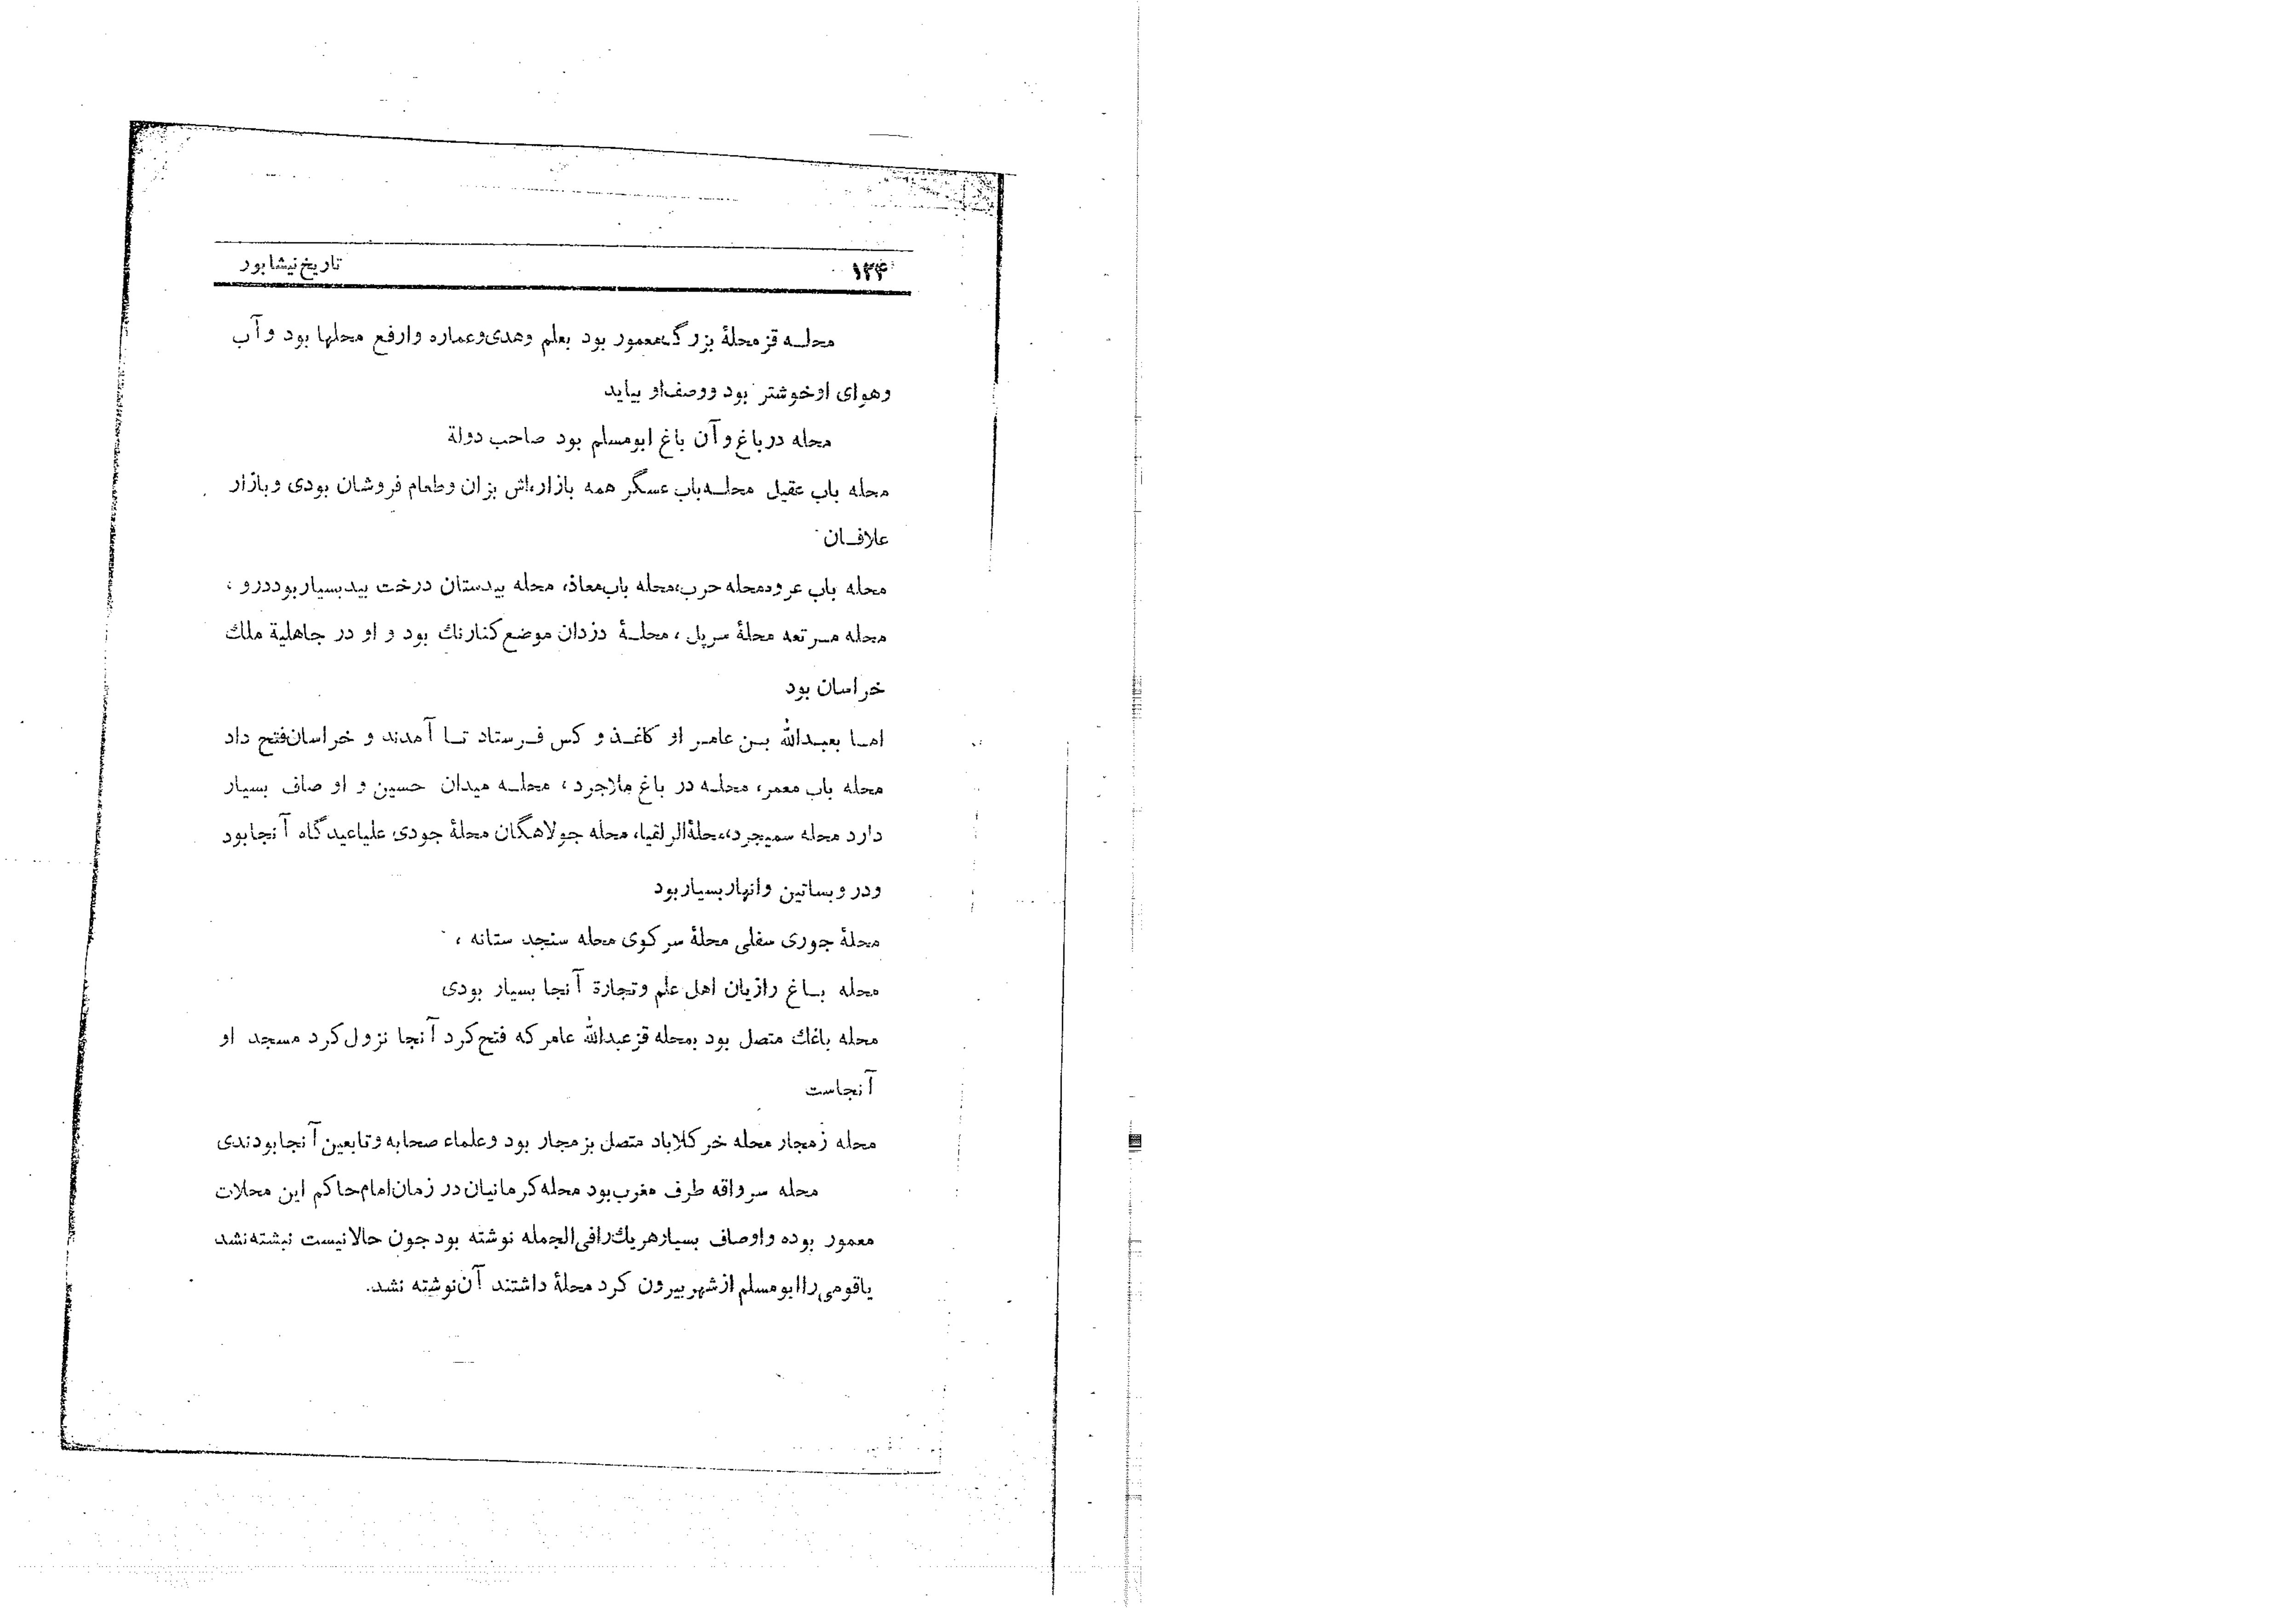 ۱۲۴ تاریخ نیشابور
محلـه قز محلهٔ بزرگ معمور بود بعلم وهدی وعماره وارفع محلها بود وآب
وهوای اوخوشتر بود ووصف او بیاید
محله درباغ وآن باغ ابومسلم بود صاحب دولة
محله باب عقیل محلـه باب عسگر همه بازار،اش بزان وطعام فروشان بودی وبازار
علافـان
محله باب عروه محله حرب، محله باب معاذ، محله بیدستان درخت بید بسیار بود درو ،
محله مـرتعه محلهٔ سرپل ، محلـهٔ دزدان موضع کنارنك بود و او در جاهلیة ملك
خراسان بود
امـا بعبـدالله بـن عامـر او کاغـذ و کس فـرستاد تـا آمدند و خراسان فتح داد
محله باب معمر، محلـه در باغ ملاجرد ، محلـه میدان حسین و او صاف بسیار
دارد محله سمیجرد، محلهٔ الرلقیا، محله جولاهگان محلهٔ جودی علیا عیدگاه آنجا بود
ودرو بساتین وانهار بسیار بود
محلهٔ جوری سفلی محلهٔ سرکوی محله سنجد ستانه ،
محله بـاغ رازیان اهل علم وتجارة آنجا بسیار بودی
محله باغك متصل بود بمحله قز عبدالله عامر که فتح کرد آنجا نزول کرد مسجد او
آنجاست
محله زمجار محله خرکلاباد متصل بزمجار بود وعلماء صحابه وتابعین آنجا بودندی
محله سرواقه طرف مغرب بود محله کرمانیان در زمان امام حاکم این محلات
معمور بوده واوصاف بسیار هریك را فی الجمله نوشته بود جون حالا نیست نبشته نشد
یاقومی را ابومسلم از شهر بیرون کرد محلهٔ داشتند آن نوشته نشد.